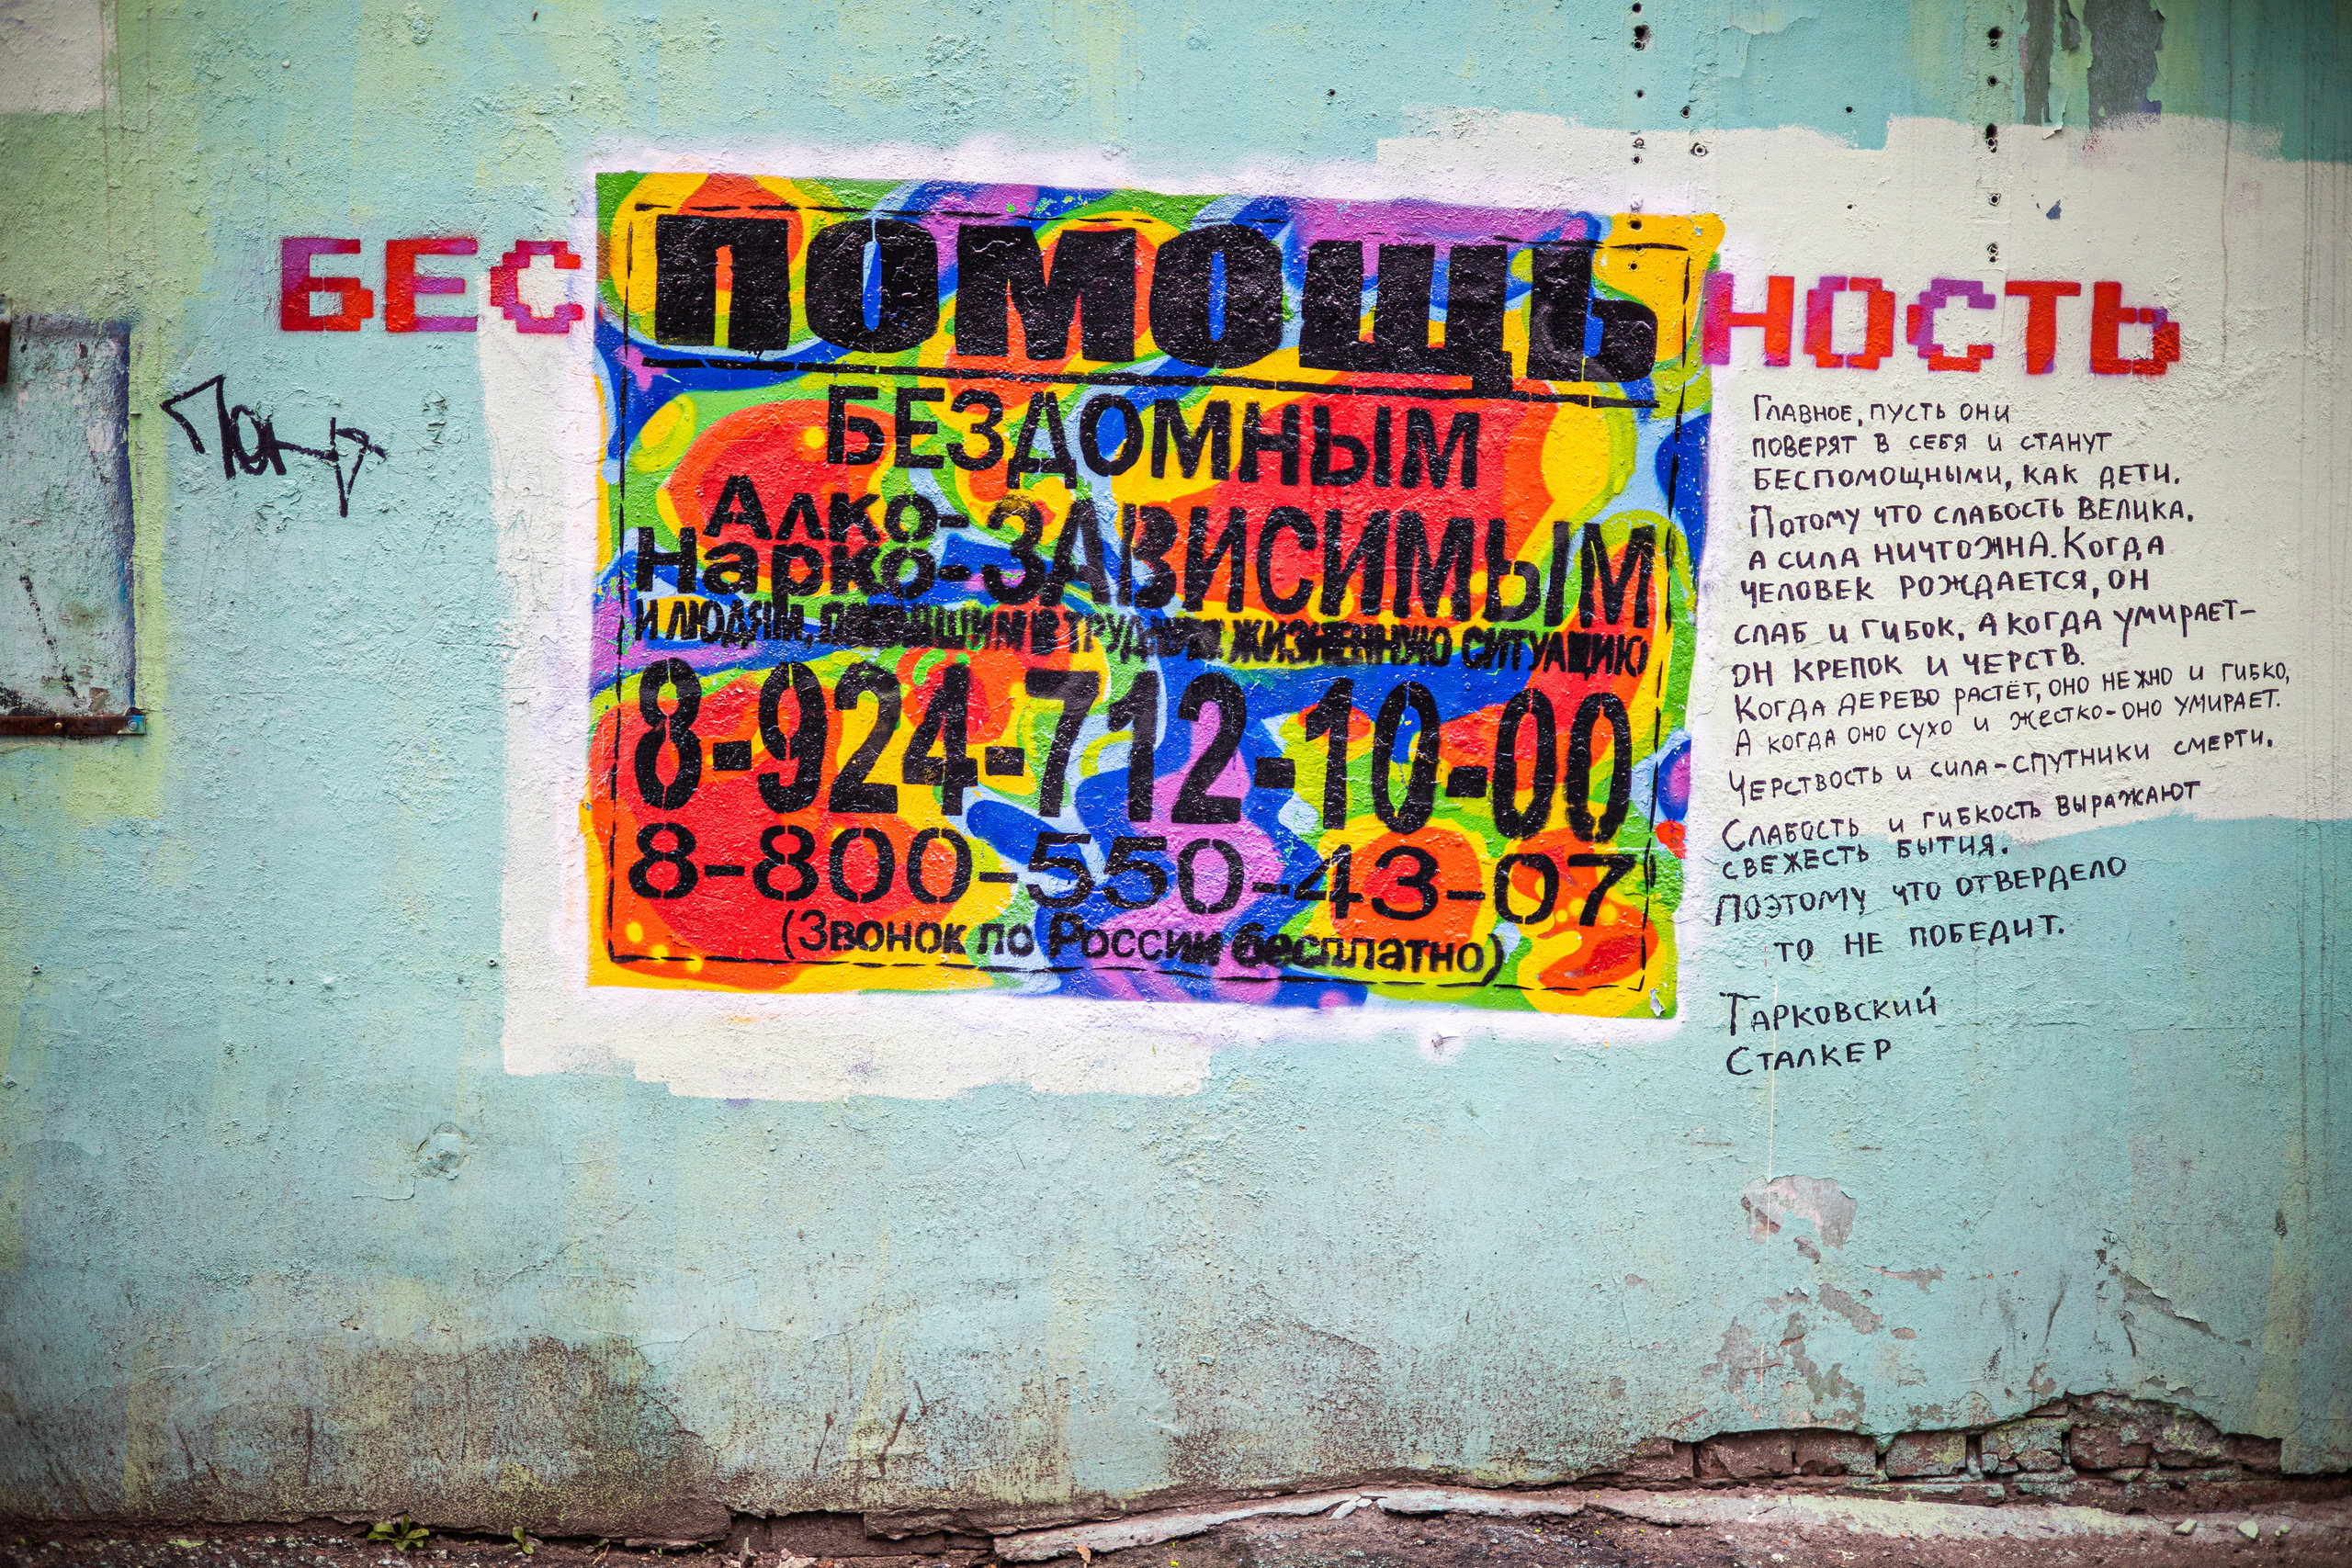 БЕСПОМОЩЬНОСТЬ
БЕЗДОМНЫМ
Алко-
Нарко-ЗАВИСИМЫМ
И ЛЮДЯМ, ПОПАВШИМ В ТРУДНУЮ ЖИЗНЕННУЮ СИТУАЦИЮ
8-924-712-10-00
8-800-550-43-07
(Звонок по России бесплатно)
Главное, пусть они
поверят в себя и станут
беспомощными, как дети.
Потому что слабость велика,
а сила ничтожна. Когда
человек рождается, он
слаб и гибок, а когда умирает-
он крепок и черств.
Когда дерево растёт, оно нежно и гибко,
А когда оно сухо и жестко-оно умирает.
Черствость и сила-спутники смерти,
Слабость и гибкость выражают
свежесть бытия.
Поэтому что отвердело
то не победит.
Тарковский
Сталкер